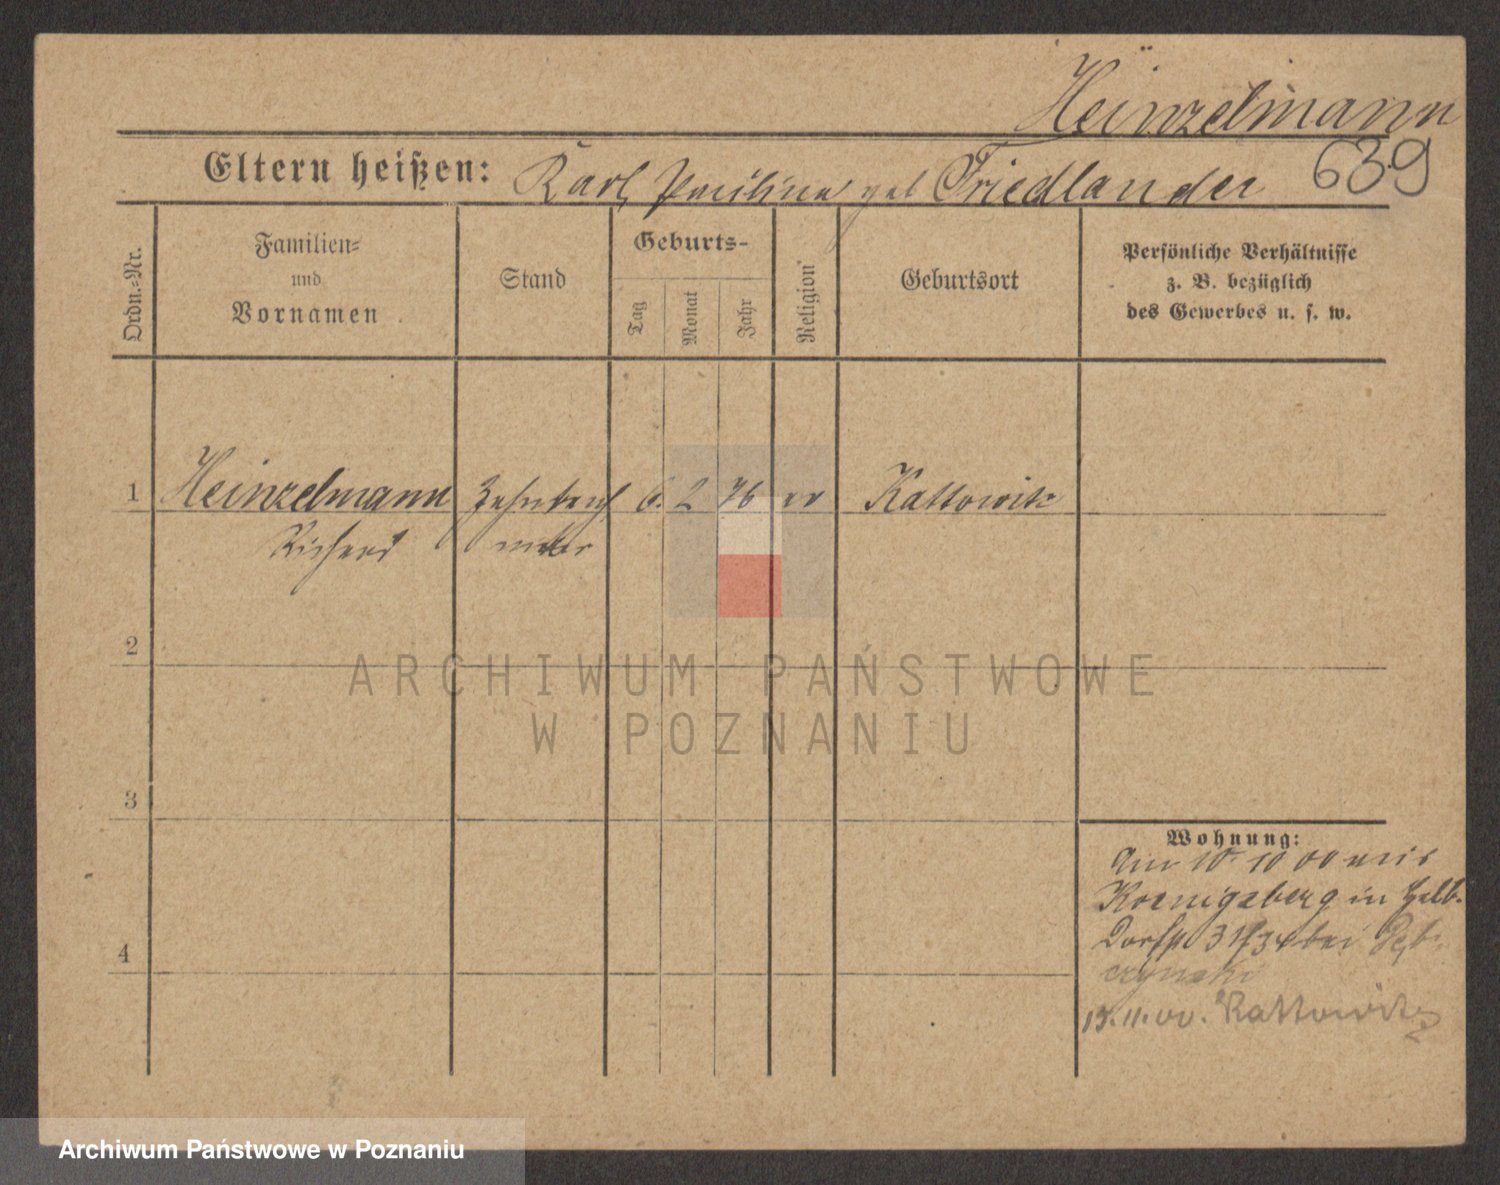 Heinzelmann
639
Eltern heißen: Karl, Paulina geb Friedlander
Ordn.-Nr.
Familien-
und
Vornamen
Stand
Geburts-
Tag
Monat
Jahr
Religion
Geburtsort
Persönliche Verhältnisse
z. B. bezüglich
des Gewerbes u. s. w.
1 Heinzelmann 6. 2 76 Kattowitz
Richard
2
3
4
Wohnung:
Am 10. 10 00 aus
Koenigsberg in
31/34 bei
czynski
15.11.00. Kattowitz
ARCHIWUM PAŃSTWOWE
W POZNANIU
Archiwum Państwowe w Poznaniu